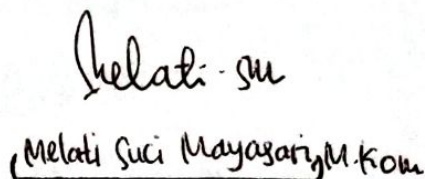 Melati-sm
(Melati Suci Mayasari, M.Kom